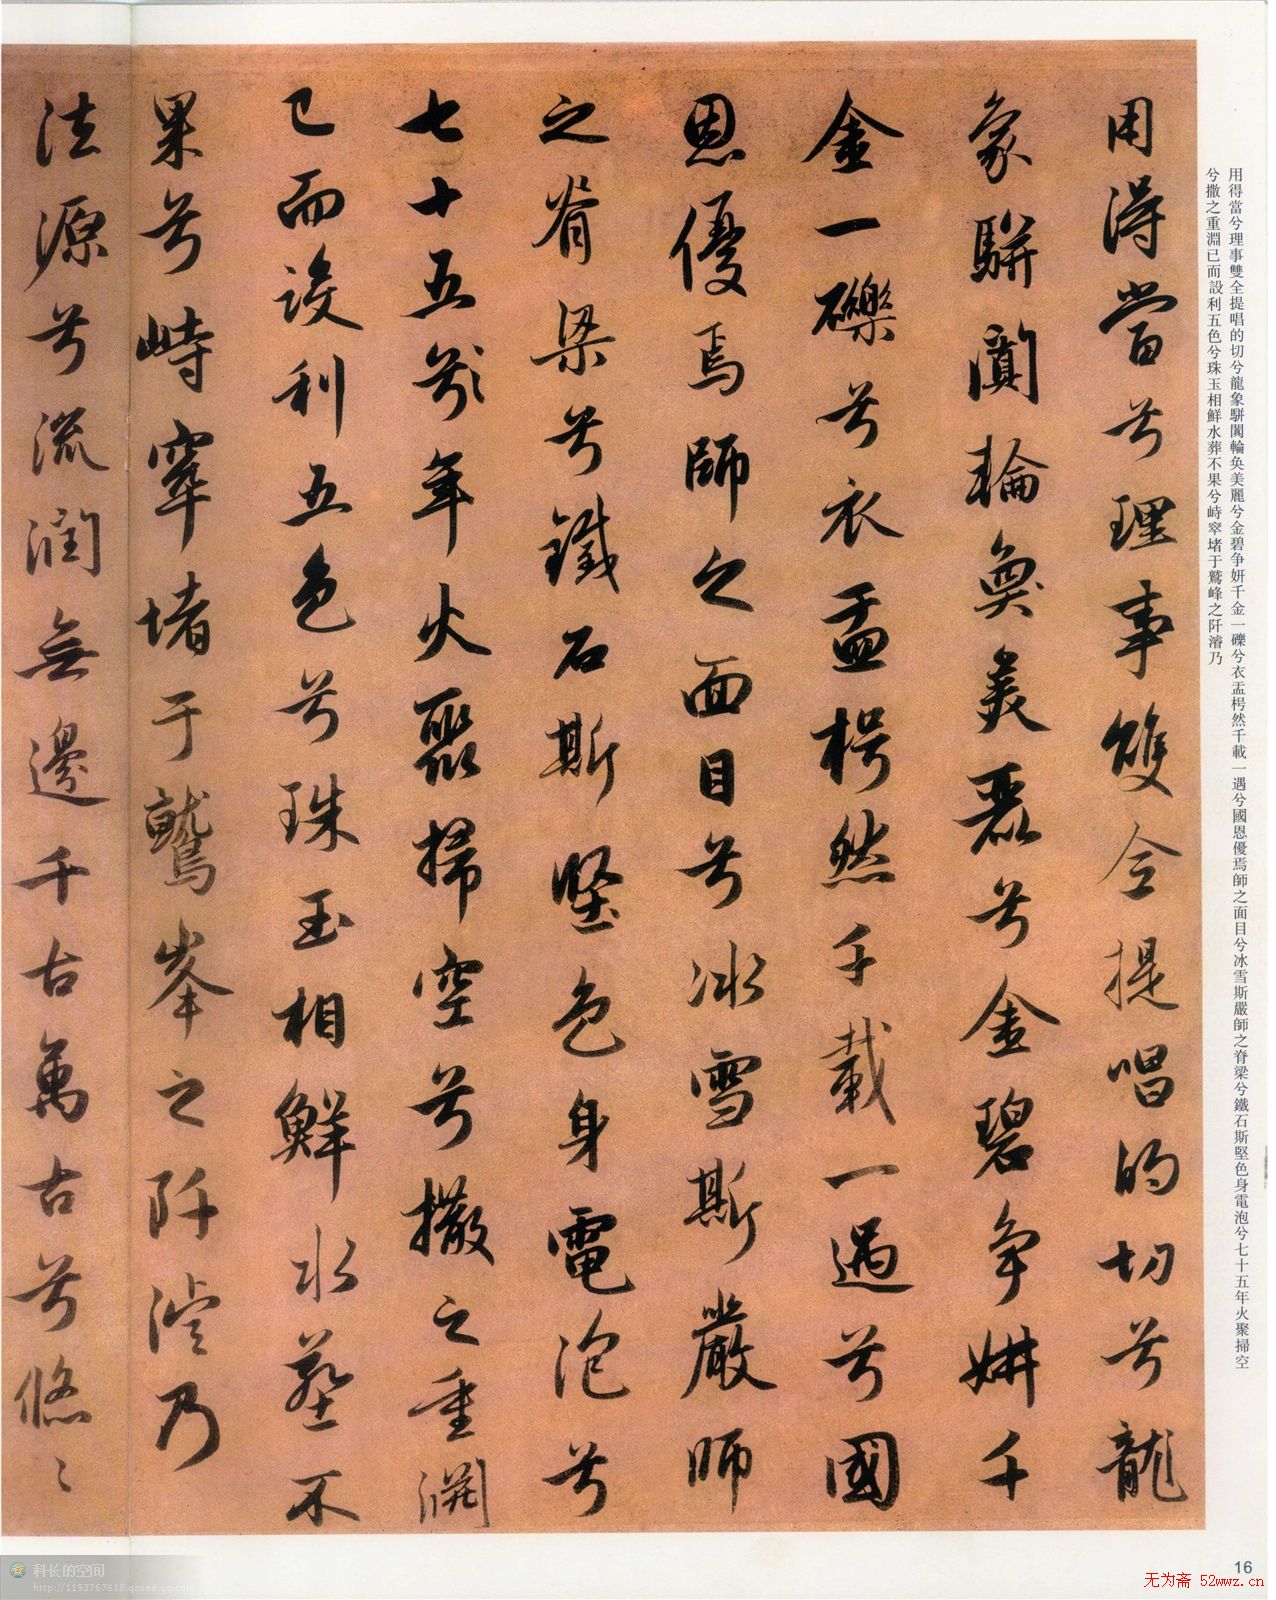 用得當兮理事雙全提唱的切兮龍象駢闐輪奐美麗兮金碧争妍千金一礫兮衣盂枵然千載一遇兮國恩優焉師之面目兮冰雪斯嚴師之脊梁兮鐵石斯堅色身電泡兮七十五年火聚掃空
兮撒之重淵已而設利五色兮珠玉相鮮水葬不果兮峙窣堵于鷲峰之阡濬乃
用得當兮理事雙全提唱的切兮龍
象駢闐輪奐美麗兮金碧争妍千
金一礫兮衣盂枵然千載一遇兮國
恩優焉師之面目兮冰雪斯嚴師
之脊梁兮鐵石斯堅色身電泡兮
七十五年火聚掃空兮撒之重淵
已而設利五色兮珠玉相鮮水葬不
果兮峙窣堵于鷲峯之阡濬乃
法源兮流潤無邊千古萬古兮悠〻
16
科长的空间
http://1193767618.qzone.qq.com
无为斋 52wwz.cn